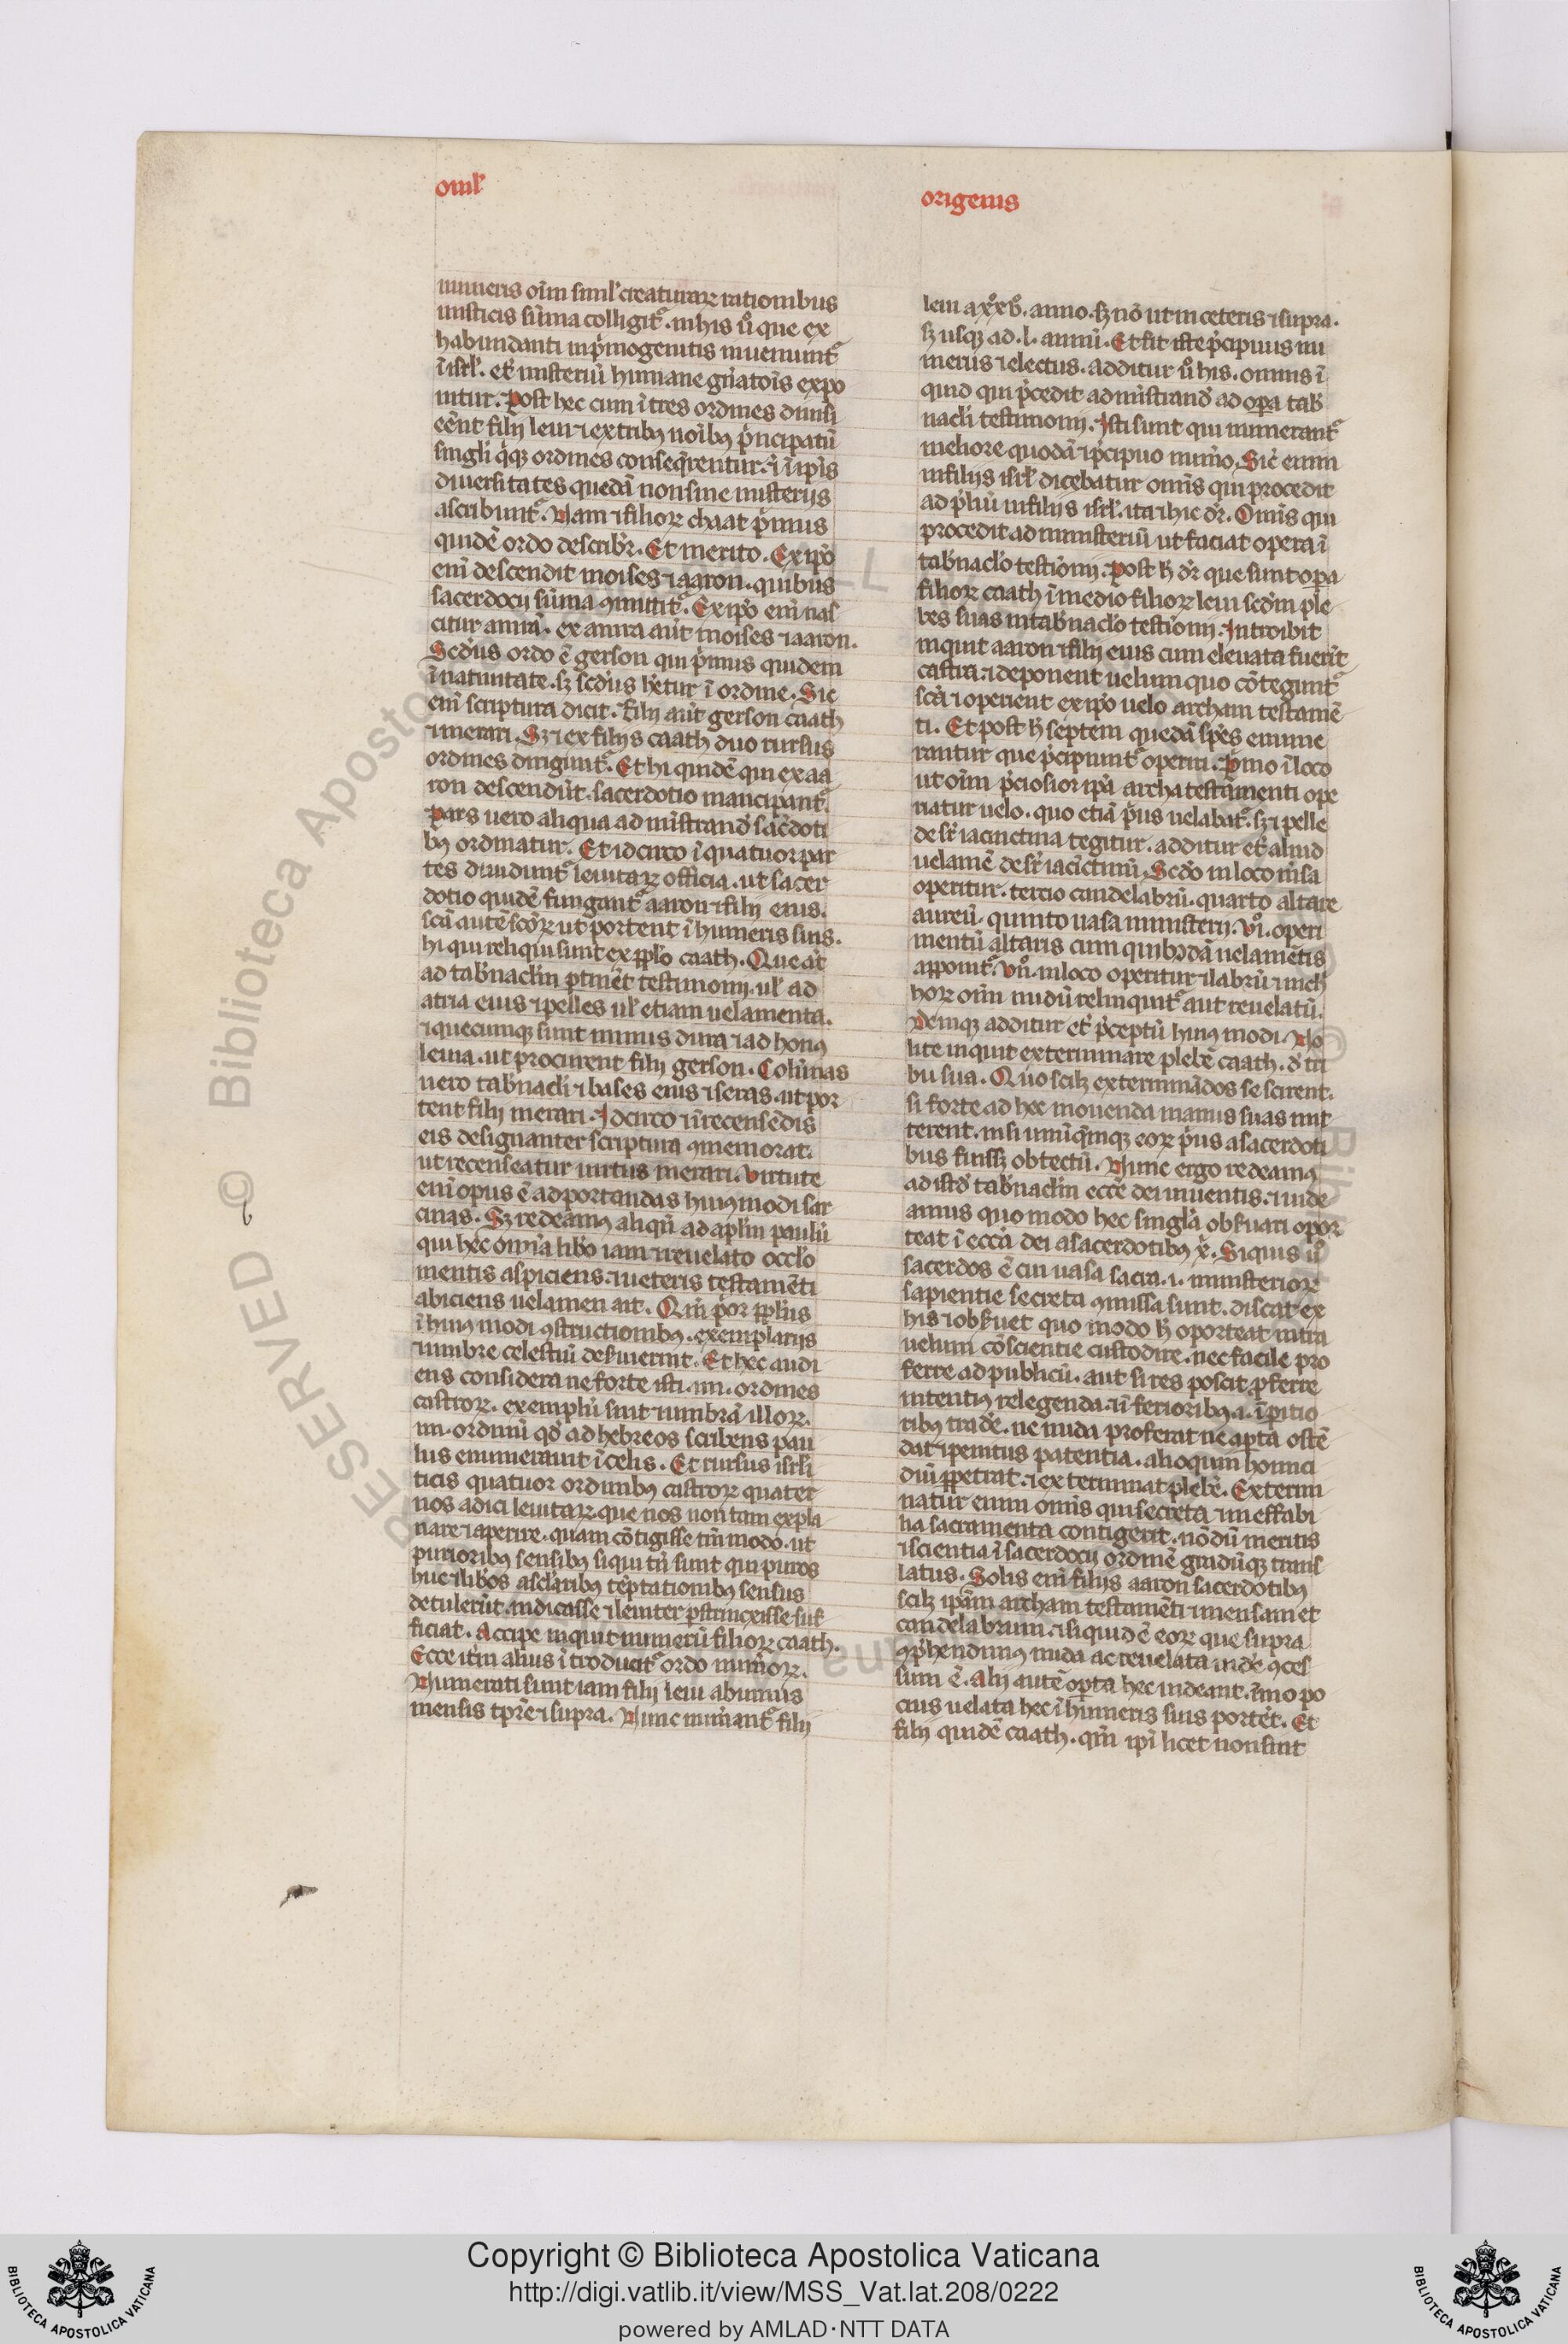 omł
origenis
numeris oı̄m simł creaturaꝝ rationibus
misticis sūma colligit᷑. in his u᷑o que ex
habundanti in p᷑mogenitis inueniunt᷑
ī isrł. et᷑ misteriū humane gn᷑atoı̄s expo
nitur. Post hec cum ī tres ordines diuisi
eēnt filij leui ⁊ ex tribꝫ noı̄bꝫ p᷑ncipatū
singłi q᷑qꝫ ordines conseq᷑rentur. ⁊ ī ip̄is
diuersitates quedā non sine misterijs
ascribunt᷑. Nam ⁊ filioꝝ chaat p᷑mus
quidē ordo describr̄. Et merito. Ex ip̄o
enī descendit moises ⁊ aaron. quibus
sacerdocij sūma ꝯmittit᷑. Ex ip̄o enī nas
citur amra. ex amra aūt moises ⁊ aaron.
Scd̄us ordo ē gerson qui p᷑mus quidem
ī natiuitate. sꝫ scd̄us hr̄etur ī ordine. Sic
enī scriptura dicit. Filij aūt gerson caath
⁊ merari. Sꝫ ⁊ ex filijs caath duo rursus
ordines dirigunt᷑. Et hi quidē qui ex aa
ron descendūt. sacerdotio mancipant᷑.
Pars uero aliqua ad ministrand᷑ sac᷑doti
bꝫ ordinatur. Et idcirco ī quatuor par
tes diuidunt᷑ leuitaꝝ officia. ut sacer
dotio quidē fungant᷑ aaron ⁊ filij eius.
scā autē scōꝝ ut portent ī humeris suis.
hi qui reliqui sunt ex ppło caath. Que aūt
ad tab᷑nacłm ptinēt testimonij. uł ad
atria eius ⁊ pelles uł etiam uelamenta.
⁊ quecumqꝫ sunt minus dura ⁊ ad honꝰ
leuia. ut procurent filij gerson. Colūnas
uero tab᷑nacłi ⁊ bases eius ⁊ seras. ut por
tent filij merari. Idcirco ⁊ ī recensēdis
eis designanter scriptura ꝯmemorat.
ut recenseatur uirtus merari. Virtute
enī opus ē ad portandas huiꝰmodi sar
cinas. Sꝫ redeamꝰ aliqn̄ ad apłm paulū
qui hec omīa libo iam ⁊ reuelato occło
mentis aspiciens. ⁊ ueteris testamēti
abiciens uelamen ait. Qm̄ p᷑or ppłus
ī huiꝰmodi ꝯstructionibꝫ. exemplarijs
⁊ umbre celestiū deseruierint. Et hec audi
ens considera ne forte isti .iiii. ordines
castroꝝ. exemplū sint ⁊ umbrā illoꝝ.
iiii. ordinū qd̄ ad hebreos scribens pau
lus enumerauit ī celis. Et rursus isrłi
ticis quatuor ordinibꝫ castroꝝ quater
nos adici leuitaꝝ. que nos non tam expla
nare ⁊ aperire. quam cōtigisse tm̄modo. ut
purioribꝫ sensibꝫ siqui tn̄ sunt qui puros
huc ⁊ libos a scłaribꝫ tēptationibꝫ sensus
detulerūt. indicasse ⁊ leuiter pstrinxisse suf
ficiat. Accipe inquit numerū filioꝝ caath.
Ecce itm̄ alius ī troducit᷑ ordo nūioꝝ.
Numerati sunt iam filij leui ab unius
mensis tpr̄e ⁊ supra. Nunc numant᷑ filij
leui a xxv. anno. sꝫ nō ut in ceteris ⁊ supra.
sꝫ usqꝫ ad .l. annū. Et fit iste p᷑cipuus nu
merus ⁊ electus. additur u᷑o his. omnis ī
quid qui p᷑cedit ad ministrand᷑ ad opa tab᷑
nacłi testimonij. Isti sunt qui numerant᷑
meliore quodā ⁊ p᷑cipuo num̄o. Sic enim
in filijs isrł dicebatur omīs qui procedit
ad p᷑liū in filijs isrł. ita ⁊ hic dr̄. Omīs qui
procedit ad ministeriū ut faciat opera ī
tab᷑nacło testiōnij. Post h᷑ dr̄ que sunt opa
filioꝝ caath ī medio filioꝝ leui scd̄m ple
bes suas in tab᷑nacło testiōnij. Introibit
inquit aaron ⁊ filij eius cum eleuata fuerit
castra. ⁊ deponent uelum quo cōtegunt᷑
scā ⁊ operient ex ip̄o uelo archam testamē
ti. Et post h᷑ septem quedā spēs enume
rantur que p᷑cipiunt᷑ operiri. Pimo ī loco
ut oı̄m p᷑ciosior ip̄a archa testamenti ope
riatur uelo. quo etiā p᷑us uelabat᷑. sꝫ ⁊ pelle
desr̄ iacinctina tegitur. additur et᷑ aliud
uelamē desr̄ iacīctinū. Scd̄o in loco m̄sa
operitur. tercio candelabrū. quarto altare
aureū. quinto uasa ministerij. vı. operi
mentū altaris cum quibꝫdā uelamētis
apponit᷑. vıı. in loco operitur ⁊ labrū ⁊ nich᷑
hoꝝ oı̄m nudū relinquit᷑ aut reuelatū.
Deniqꝫ additur et᷑ p᷑ceptū huiꝰmodi. No
lite inquit exterminare plebē caath. d᷑ tri
bu sua. Quo scilꝫ extermināndos se scirent.
si forte ad hec mouenda manus suas mit
terent. nisi unū qd̄nqꝫ eoꝝ p᷑us a sacerdoti
bus fuissꝫ obtectū. Nunc ergo redeamꝰ
ad istd᷑ tab᷑nacłm eccē dei uiuentis. ⁊ uide
amus quo modo hec singła obseruari opor
teat ī ecca dei a sacerdotibꝫ x᷑. Siquis u᷑o
sacerdos ē cui uasa sacra .i. ministerioꝝ
sapientie secreta ꝯmissa sunt. discat ex
his ⁊ obseruet quo modo h᷑ oporteat intra
uelum cōscientie custodire. nec facile pro
ferre ad publicū. aut si res poscit pferre
intentiꝰ relegenda. ⁊ ī ferioribꝫ .i. īpitio
ribꝫ trade᷑. ne nuda proferat ne apta ostē
dat ⁊ penitus patentia. alioquin homici
diū ppetrat. ⁊ exterminat plebē. Extermi
natur enim omīs qui secreta ⁊ ineffabi
lia sacramenta contigerit. nōdū meritis
⁊ scientia ī sacerdocij ordinē gradūqꝫ trans
latus. Solis enī filijs aaron sacerdotibꝫ
scilꝫ ip̄am archam testamēti ⁊ mensam et
candelabrum. ⁊ siquid ē eoꝝ que supra
ꝯp᷑hendimꝰ nuda ac reuelata uide᷑ ꝯces
sum ē. Alij autē opta hec uideant. īmo po
cius uelata hec ī humeris suis portēt. Et
filij quidē caath. qm̄ ip̄i licet non sint
Copyright © Biblioteca Apostolica Vaticana
http://digi.vatlib.it/view/MSS_Vat.lat.208/0222
powered by AMLAD·NTT DATA